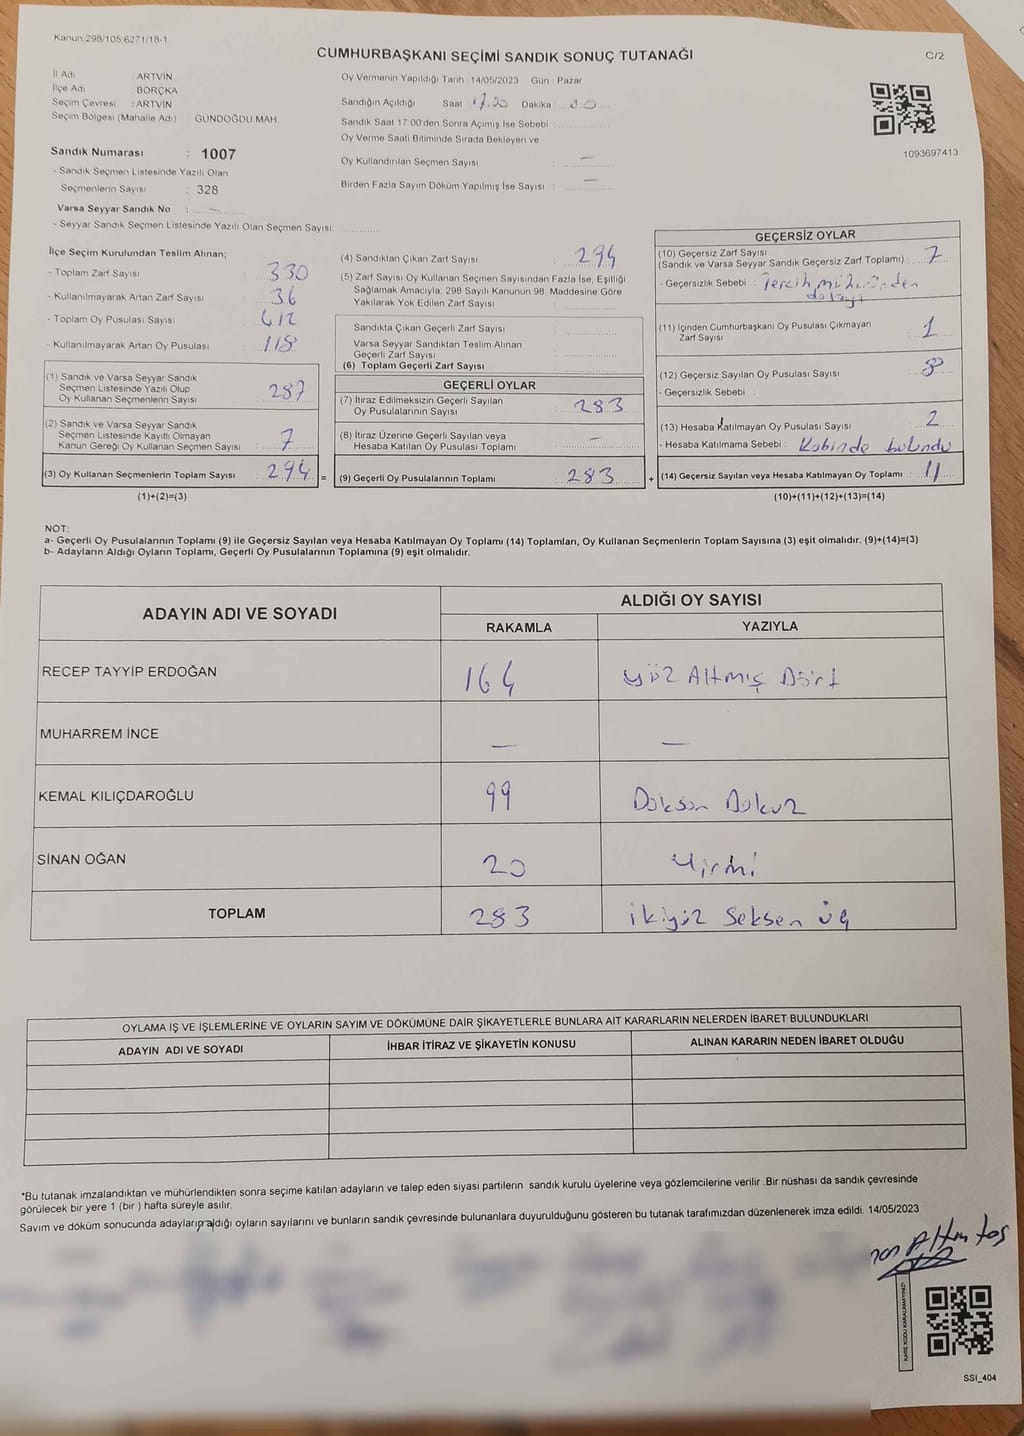 Kanun;298/105;6271/18-1
CUMHURBAŞKANI SEÇİMİ SANDIK SONUÇ TUTANAĞI
C/2
İl Adı : ARTVİN
İlçe Adı : BORÇKA
Seçim Çevresi : ARTVİN
Seçim Bölgesi (Mahalle Adı) : GÜNDOĞDU MAH.
Sandık Numarası : 1007
- Sandık Seçmen Listesinde Yazılı Olan
Seçmenlerin Sayısı : 328
Varsa Seyyar Sandık No : –
- Seyyar Sandık Seçmen Listesinde Yazılı Olan Seçmen Sayısı:
Oy Vermenin Yapıldığı Tarih :14/05/2023 Gün : Pazar
Sandığın Açıldığı Saat 17.30 Dakika
Sandık Saat 17:00'den Sonra Açımış İse Sebebi :
Oy Verme Saati Bitiminde Sırada Bekleyen ve
Oy Kullandırılan Seçmen Sayısı : –
Birden Fazla Sayım Döküm Yapılmış İse Sayısı : –
1093697413
İlçe Seçim Kurulundan Teslim Alınan;
- Toplam Zarf Sayısı : 330
- Kullanılmayarak Artan Zarf Sayısı : 36
- Toplam Oy Pusulası Sayısı : 412
- Kullanılmayarak Artan Oy Pusulası : 118
(1) Sandık ve Varsa Seyyar Sandık
Seçmen Listesinde Yazılı Olup
Oy Kullanan Seçmenlerin Sayısı : 287
(2) Sandık ve Varsa Seyyar Sandık
Seçmen Listesinde Kayıtlı Olmayan
Kanun Gereği Oy Kullanan Seçmen Sayısı : 7
(3) Oy Kullanan Seçmenlerin Toplam Sayısı : 294 =
(1)+(2)=(3)
(4) Sandıktan Çıkan Zarf Sayısı : 294
(5) Zarf Sayısı Oy Kullanan Seçmen Sayısından Fazla İse, Eşitliği
Sağlamak Amacıyla; 298 Sayılı Kanunun 98. Maddesine Göre
Yakılarak Yok Edilen Zarf Sayısı :
Sandıkla Çıkan Geçerli Zarf Sayısı :
Varsa Seyyar Sandıktan Teslim Alınan
Geçerli Zarf Sayısı :
(6) Toplam Geçerli Zarf Sayısı :
GEÇERLİ OYLAR
(7) İtiraz Edilmeksizin Geçerli Sayılan
Oy Pusulalarının Sayısı : 283
(8) İtiraz Üzerine Geçerli Sayılan veya
Hesaba Katılan Oy Pusulası Toplamı : –
(9) Geçerli Oy Pusulalarının Toplamı : 283 +
GEÇERSİZ OYLAR
(10) Geçersiz Zarf Sayısı
(Sandık ve Varsa Seyyar Sandık Geçersiz Zarf Toplamı) : 7
- Geçersizlik Sebebi : Tercih mühüründen
dolayı
(11) İçinden Cumhurbaşkanı Oy Pusulası Çıkmayan
Zarf Sayısı : 1
(12) Geçersiz Sayılan Oy Pusulası Sayısı :
- Geçersizlik Sebebi :
(13) Hesaba Katılmayan Oy Pusulası Sayısı : 2
- Hesaba Katılmama Sebebi : Kabinde bulundu
(14) Geçersiz Sayılan veya Hesaba Katılmayan Oy Toplamı : 11
(10)+(11)+(12)+(13)=(14)
NOT:
a- Geçerli Oy Pusulalarının Toplamı (9) ile Geçersiz Sayılan veya Hesaba Katılmayan Oy Toplamı (14) Toplamları, Oy Kullanan Seçmenlerin Toplam Sayısına (3) eşit olmalıdır. (9)+(14)=(3)
b- Adayların Aldığı Oyların Toplamı, Geçerli Oy Pusulalarının Toplamına (9) eşit olmalıdır.
ADAYIN ADI VE SOYADI ALDIĞI OY SAYISI
RAKAMLA YAZIYLA
RECEP TAYYİP ERDOĞAN 164 yüz Altmış Dört
MUHARREM İNCE – –
KEMAL KILIÇDAROĞLU 99 Doksan Dokuz
SİNAN OĞAN 20 Yirmi
TOPLAM 283 ikiyüz Seksen üç
OYLAMA İŞ VE İŞLEMLERİNE VE OYLARIN SAYIM VE DÖKÜMÜNE DAİR ŞİKAYETLERLE BUNLARA AİT KARARLARIN NELERDEN İBARET BULUNDUKLARI
ADAYIN ADI VE SOYADI İHBAR İTİRAZ VE ŞİKAYETİN KONUSU ALINAN KARARIN NEDEN İBARET OLDUĞU
*Bu tutanak imzalandıktan ve mühürlendikten sonra seçime katılan adayların ve talep eden siyasi partilerin sandık kurulu üyelerine veya gözlemcilerine verilir .Bir nüshası da sandık çevresinde
görülecek bir yere 1 (bir ) hafta süreyle asılır.
Sayım ve döküm sonucunda adayların aldığı oyların sayılarını ve bunların sandık çevresinde bulunanlara duyurulduğunu gösteren bu tutanak tarafımızdan düzenlenerek imza edildi. 14/05/2023
KARE KODU KARALAMAYINIZ!
SSI_404